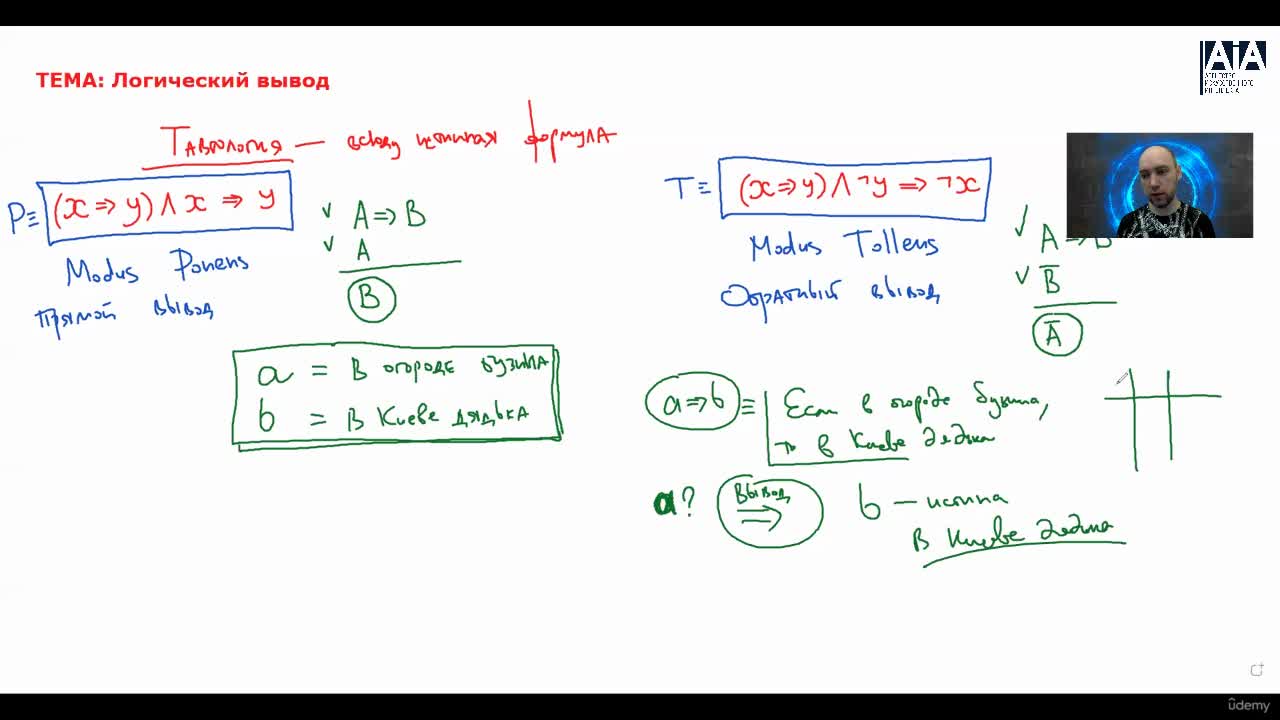 ТЕМА: Логический вывод
AiA
АГЕНТСТВО
ИСКУССТВЕННОГО
ИНТЕЛЛЕКТА
Тавтология — всюду истинная формула
P≡ (x ⇒ y) ∧ x ⇒ y
Modus Ponens
Прямой вывод
v A ⇒ B
v A
B
a = в огороде бузина
b = в Киеве дядька
T≡ (x ⇒ y) ∧ ¬y ⇒ ¬x
Modus Tollens
Обратный вывод
✓ A ⇒ B
✓ B̅
A̅
a ⇒ b ≡ Если в огороде бузина,
то в Киеве дядька
a? вывод ⇒ b — истина
в Киеве дядька
ûdemy